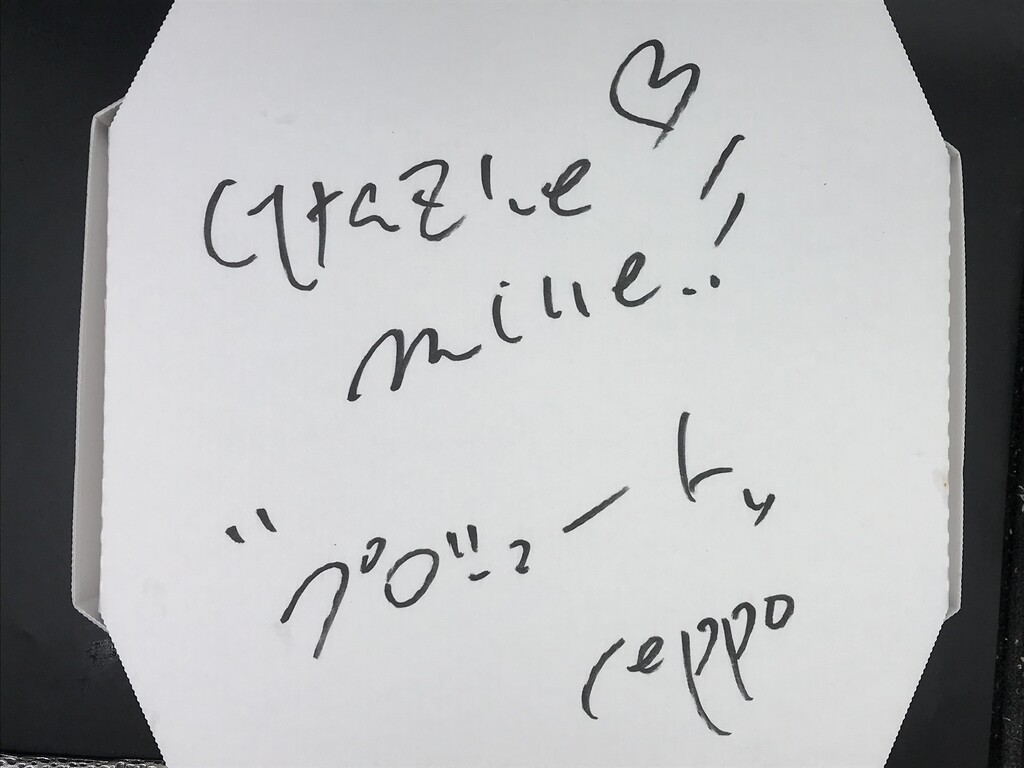 Grazie ♡
mille..!!
"プロシュート"
ceppo